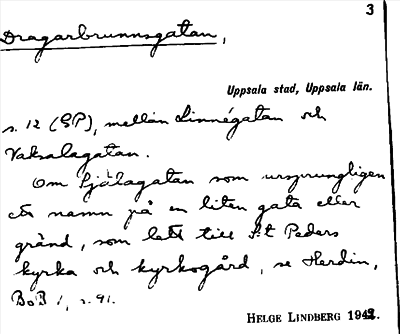 3
Dragarbrunnsgatan,
Uppsala stad, Uppsala län.
s. 12 (GP), mellan Linnégatan och
Vaksalagatan.
Om Själagatan som ursprungligen
ett namn på en liten gata eller
gränd, som lett till S:t Peders
kyrka och kyrkogård, se Herdin,
BoB 1, s. 91.
HELGE LINDBERG 1942.